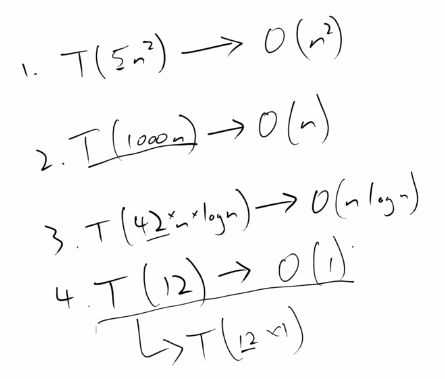 1. T(5n²) → O(n²)
2. T(1000n) → O(n)
3. T(42×n×logn) → O(n logn)
4. T(12) → O(1)
↳ T(12×1)